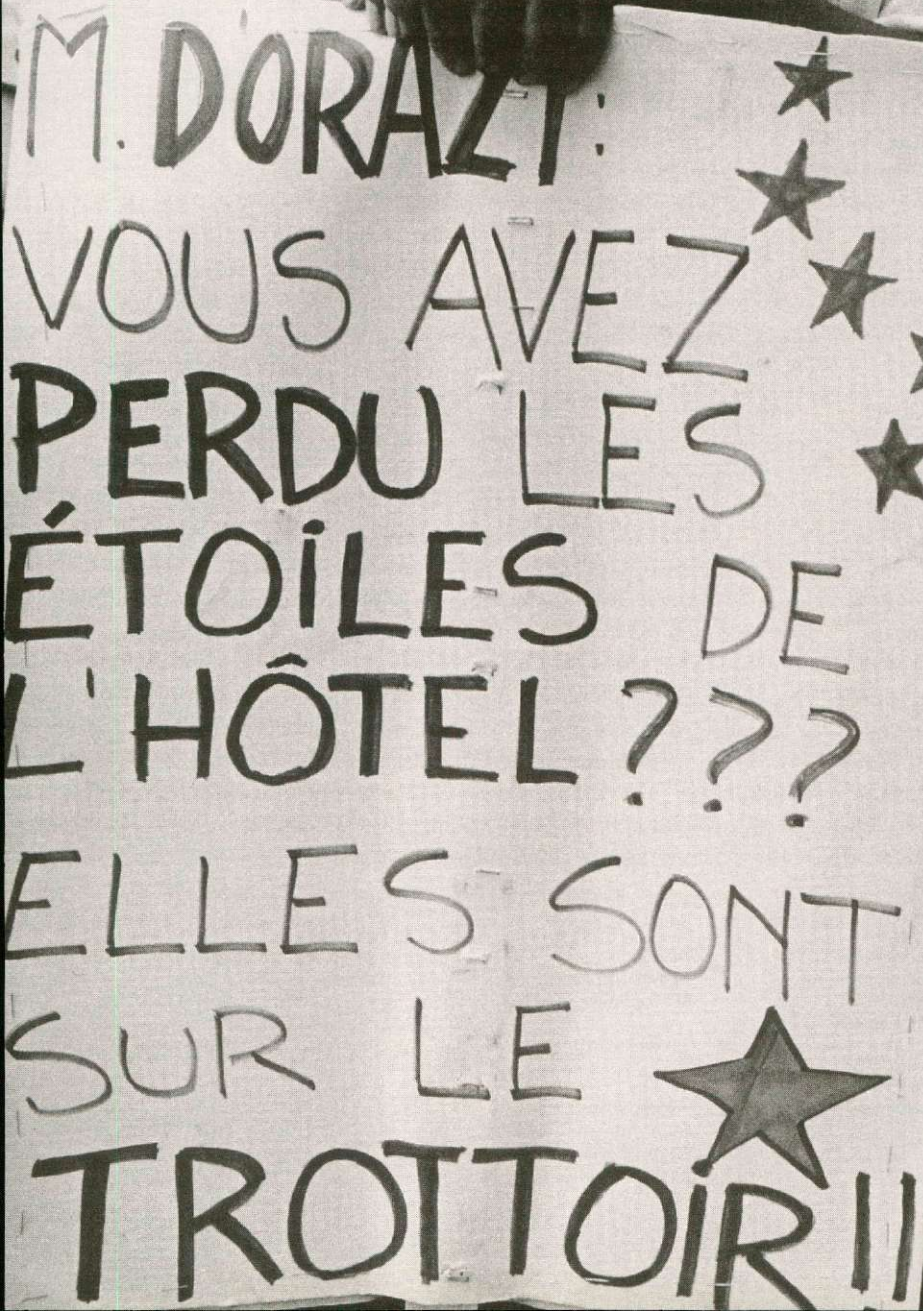 M. DORAZI:
VOUS AVEZ
PERDU LES
ÉTOILES DE
L'HÔTEL ???
ELLES SONT
SUR LE
TROTTOIR !!